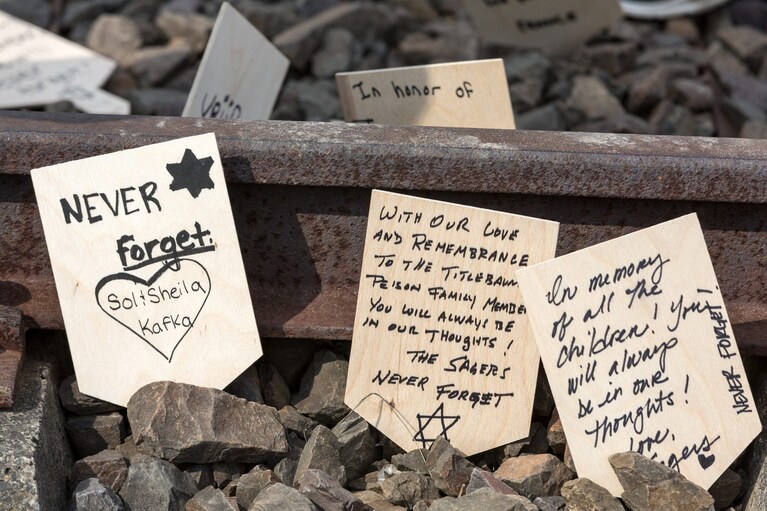 In honor of
NEVER
forget.
Sol & Sheila
Kafka
WITH OUR LOVE
AND REMEMBRANCE
TO THE TITLEBAUM
PEISON FAMILY MEMBER
YOU WILL ALWAYS BE
IN OUR THOUGHTS!
THE SAGERS
NEVER FORGET
In memory
of all the
children! You
will always
be in our
thoughts!
love,
NEVER FORGET!